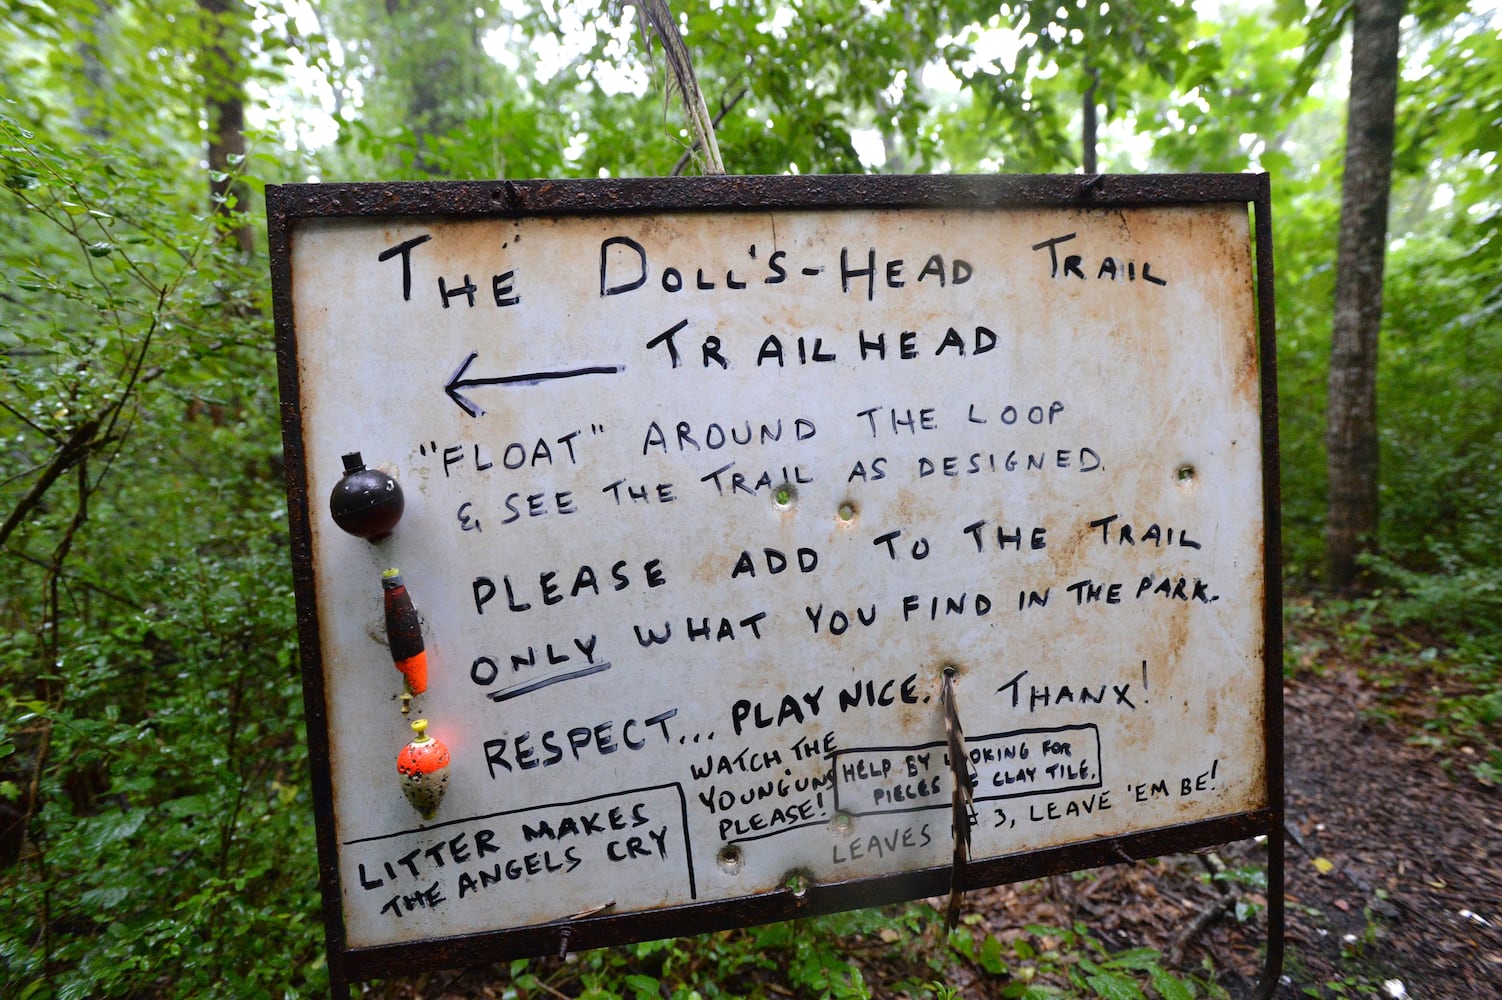 THE DOLL'S-HEAD TRAIL
TRAILHEAD
"FLOAT" AROUND THE LOOP
& SEE THE TRAIL AS DESIGNED.
PLEASE ADD TO THE TRAIL
ONLY WHAT YOU FIND IN THE PARK.
RESPECT... PLAY NICE. THANX!
WATCH THE
YOUNG'UNS
PLEASE!
HELP BY LOOKING FOR
PIECES OF CLAY TILE.
LEAVES OF 3, LEAVE 'EM BE!
LITTER MAKES
THE ANGELS CRY